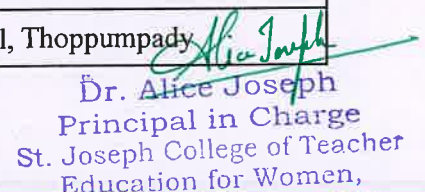 l, Thoppumpady
Alice Joseph
Dr. Alice Joseph
Principal in Charge
St. Joseph College of Teacher
Education for Women,